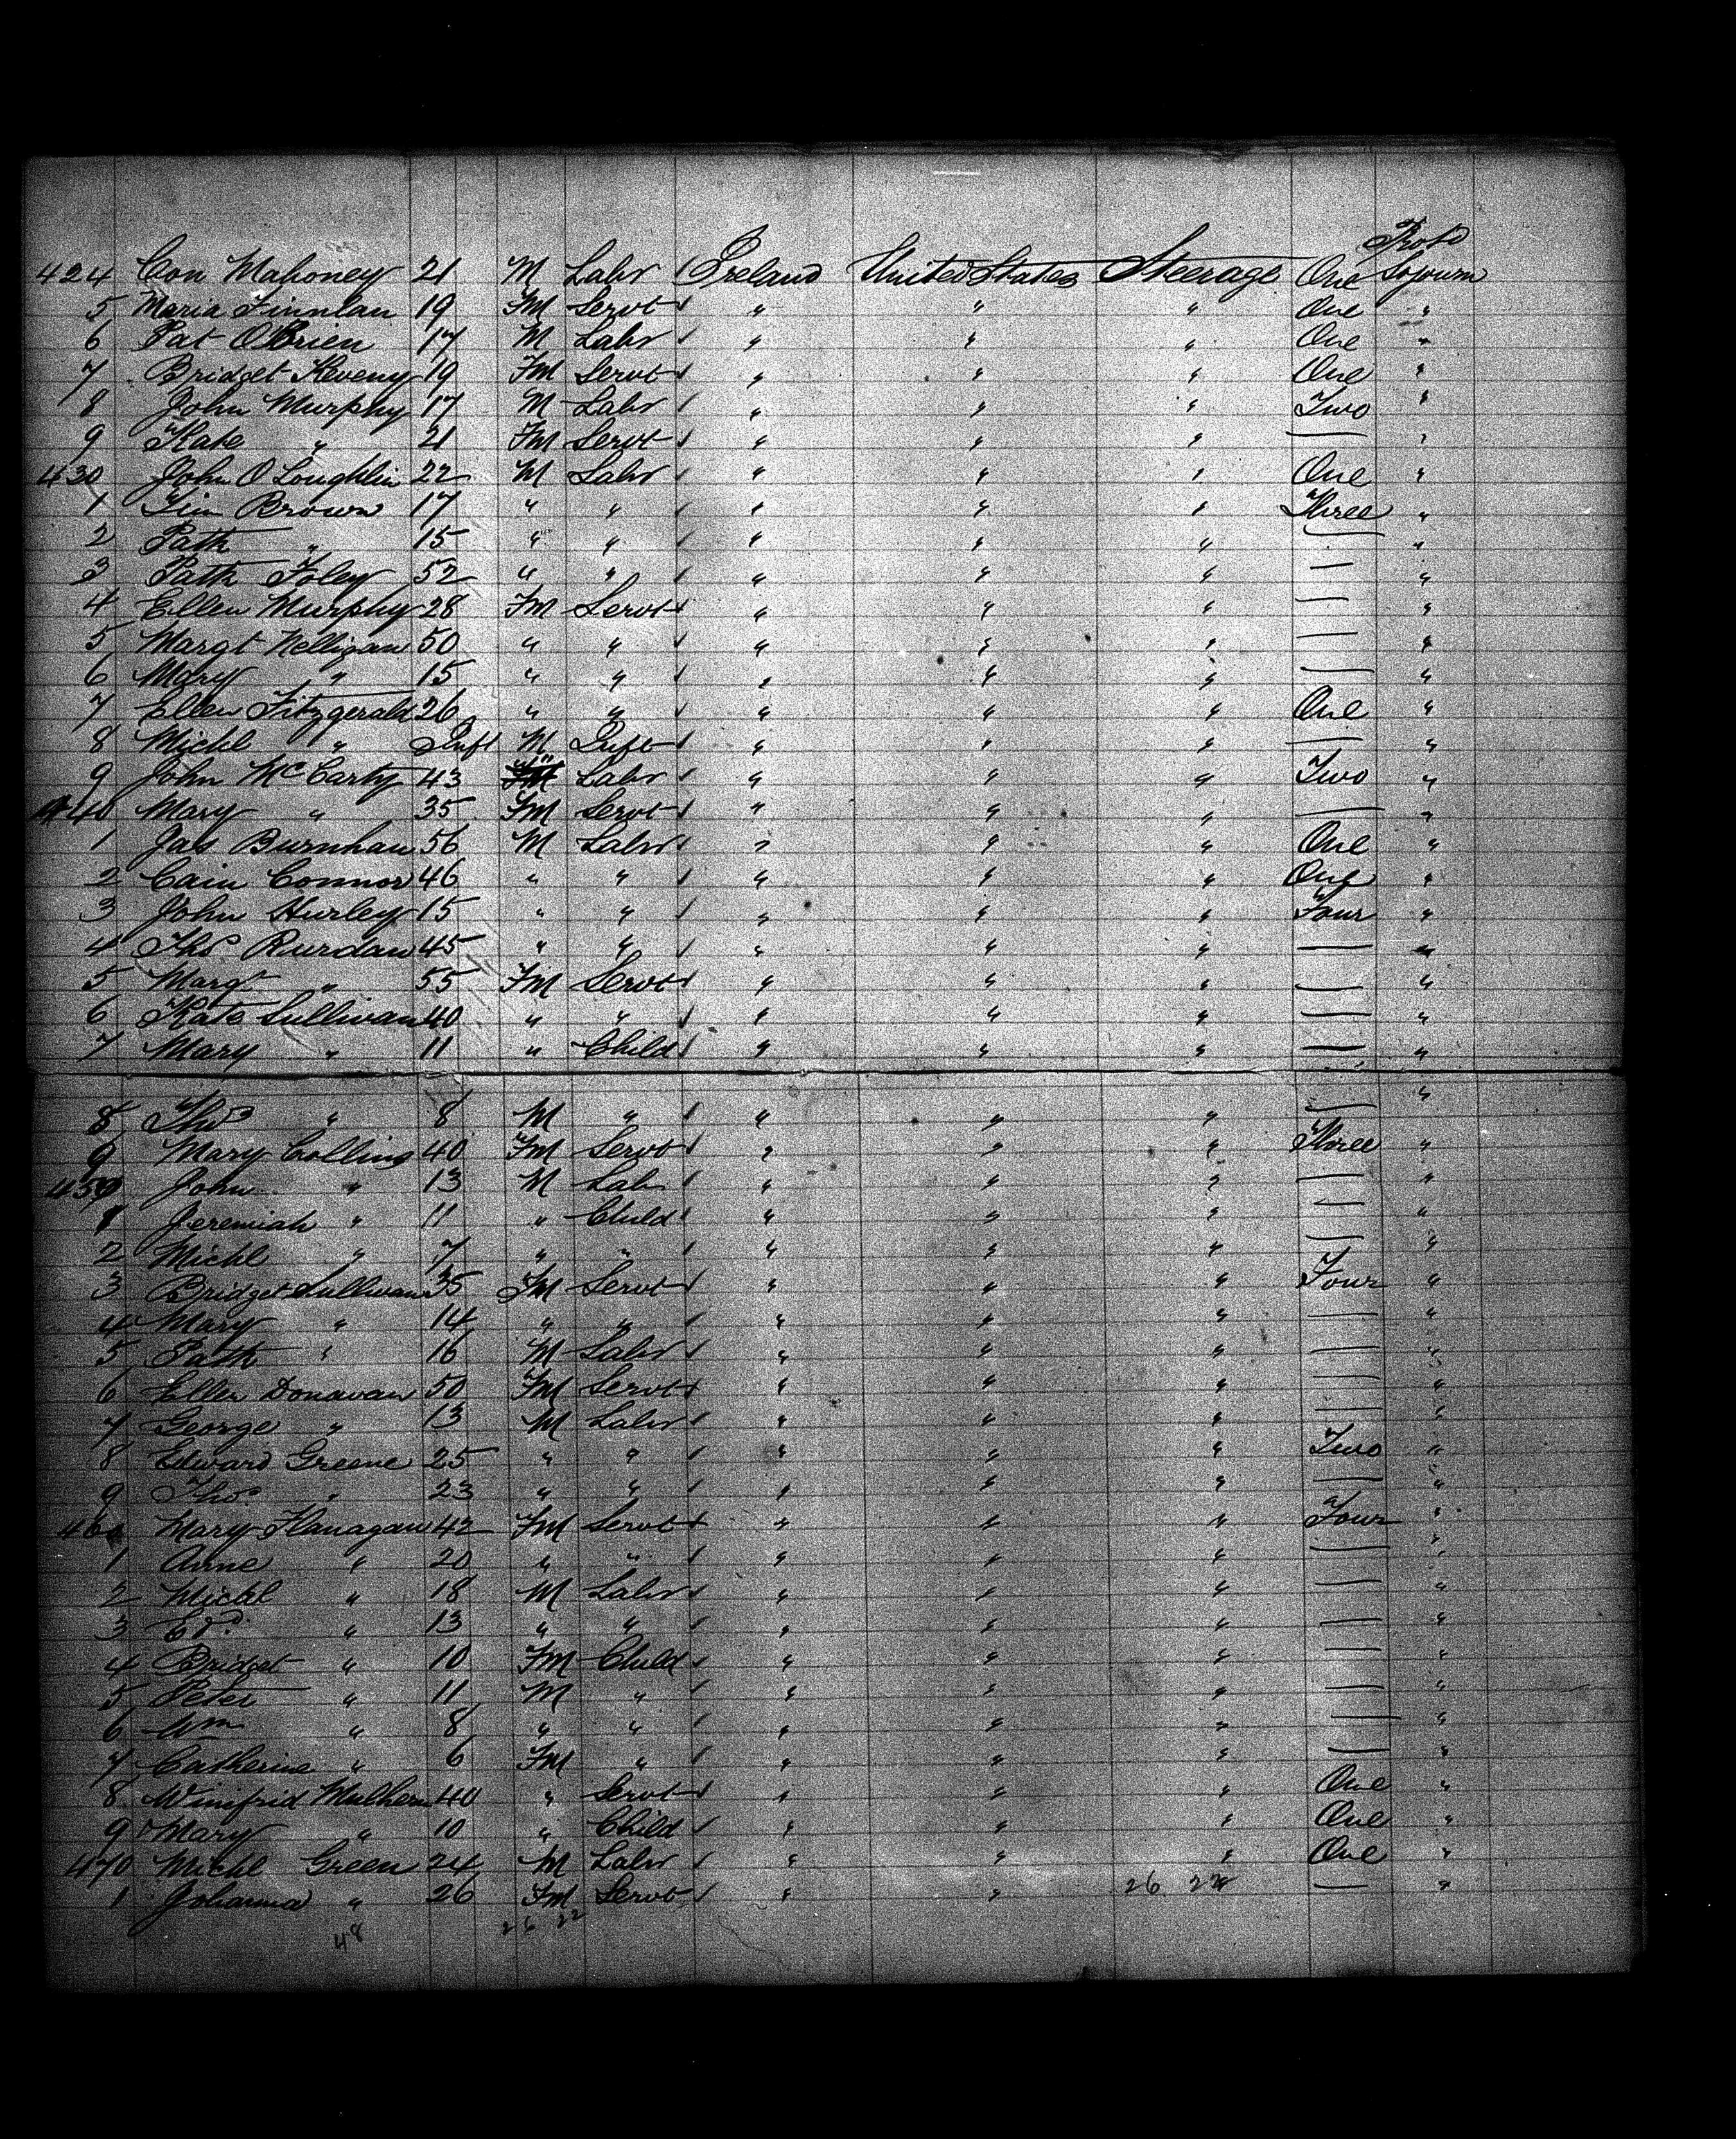 Prot͟d
424 Con Mahoney 21 M Labr Ireland United States Steerage One Sojourn
5 Maria Finnlan 19 FM Servt " " " One "
6 Pat OBrien 17 M Labr " " " One "
7 Bridget Keveny 19 FM Servt " " " One "
8 John Murphy 17 M Labr " " " Two "
9 Kate " 21 FM Servt " " " — "
430 John O Loughlin 22 M Labr " " " One "
1 Tim Brown 17 " " " " " Three "
2 Patk " 15 " " " " " — "
3 Patk Foley 52 " " " " " — "
4 Ellen Murphy 28 FM Servt " " " — "
5 Margt Nelligan 50 " " " " " — "
6 Mary " 15 " " " " " — "
7 Ellen Fitzgerald 26 " " " " " One "
8 Michl " Inft M Inft " " " — "
9 John McCarty 43 "M" Labr " " " Two "
440 Mary " 35 FM Servt " " " — "
1 Jas Burnham 56 M Labr " " " One "
2 Cain Connor 46 " " " " " One "
3 John Hurley 15 " " " " " Four "
4 Thos Rurdan 45 " " " " " — "
5 Margt " 55 FM Servt " " " — "
6 Kate Sullivan 40 " " " " " — "
7 Mary " 11 " Child " " " — "
8 Thos " 8 M " " " " — "
9 Mary Collins 40 FM Servt " " " Three "
450 John " 13 M Lab " " " — "
1 Jeremiah " 11 " Child " " " — "
2 Michl " 7 " " " " " — "
3 Bridget Sullivan 35 FM Servt " " " Four "
4 Mary " 14 " " " " " — "
5 Patk " 16 M Labr " " " — "
6 Ellen Donavan 50 FM Servt " " " — "
7 George " 13 M Labr " " " — "
8 Edward Greene 25 " " " " " Two "
9 Thos " 23 " " " " " — "
460 Mary Flanagan 42 FM Servt " " " Four "
1 Anne " 20 " " " " " — "
2 Michl " 18 M Labr " " " — "
3 Ed. " 13 " " " " " — "
4 Bridget " 10 FM Child " " " — "
5 Peter " 11 M " " " " — "
6 Wm " 8 " " " " " — "
7 Catherine " 6 FM " " " " — "
8 Winifrid Mulhern 40 " Servt " " " One "
9 Mary " 10 " Child " " " One "
470 Michl Green 24 M Labr " " " One "
1 Johanna " 26 FM Servt " " 26 22 — "
48 26 22